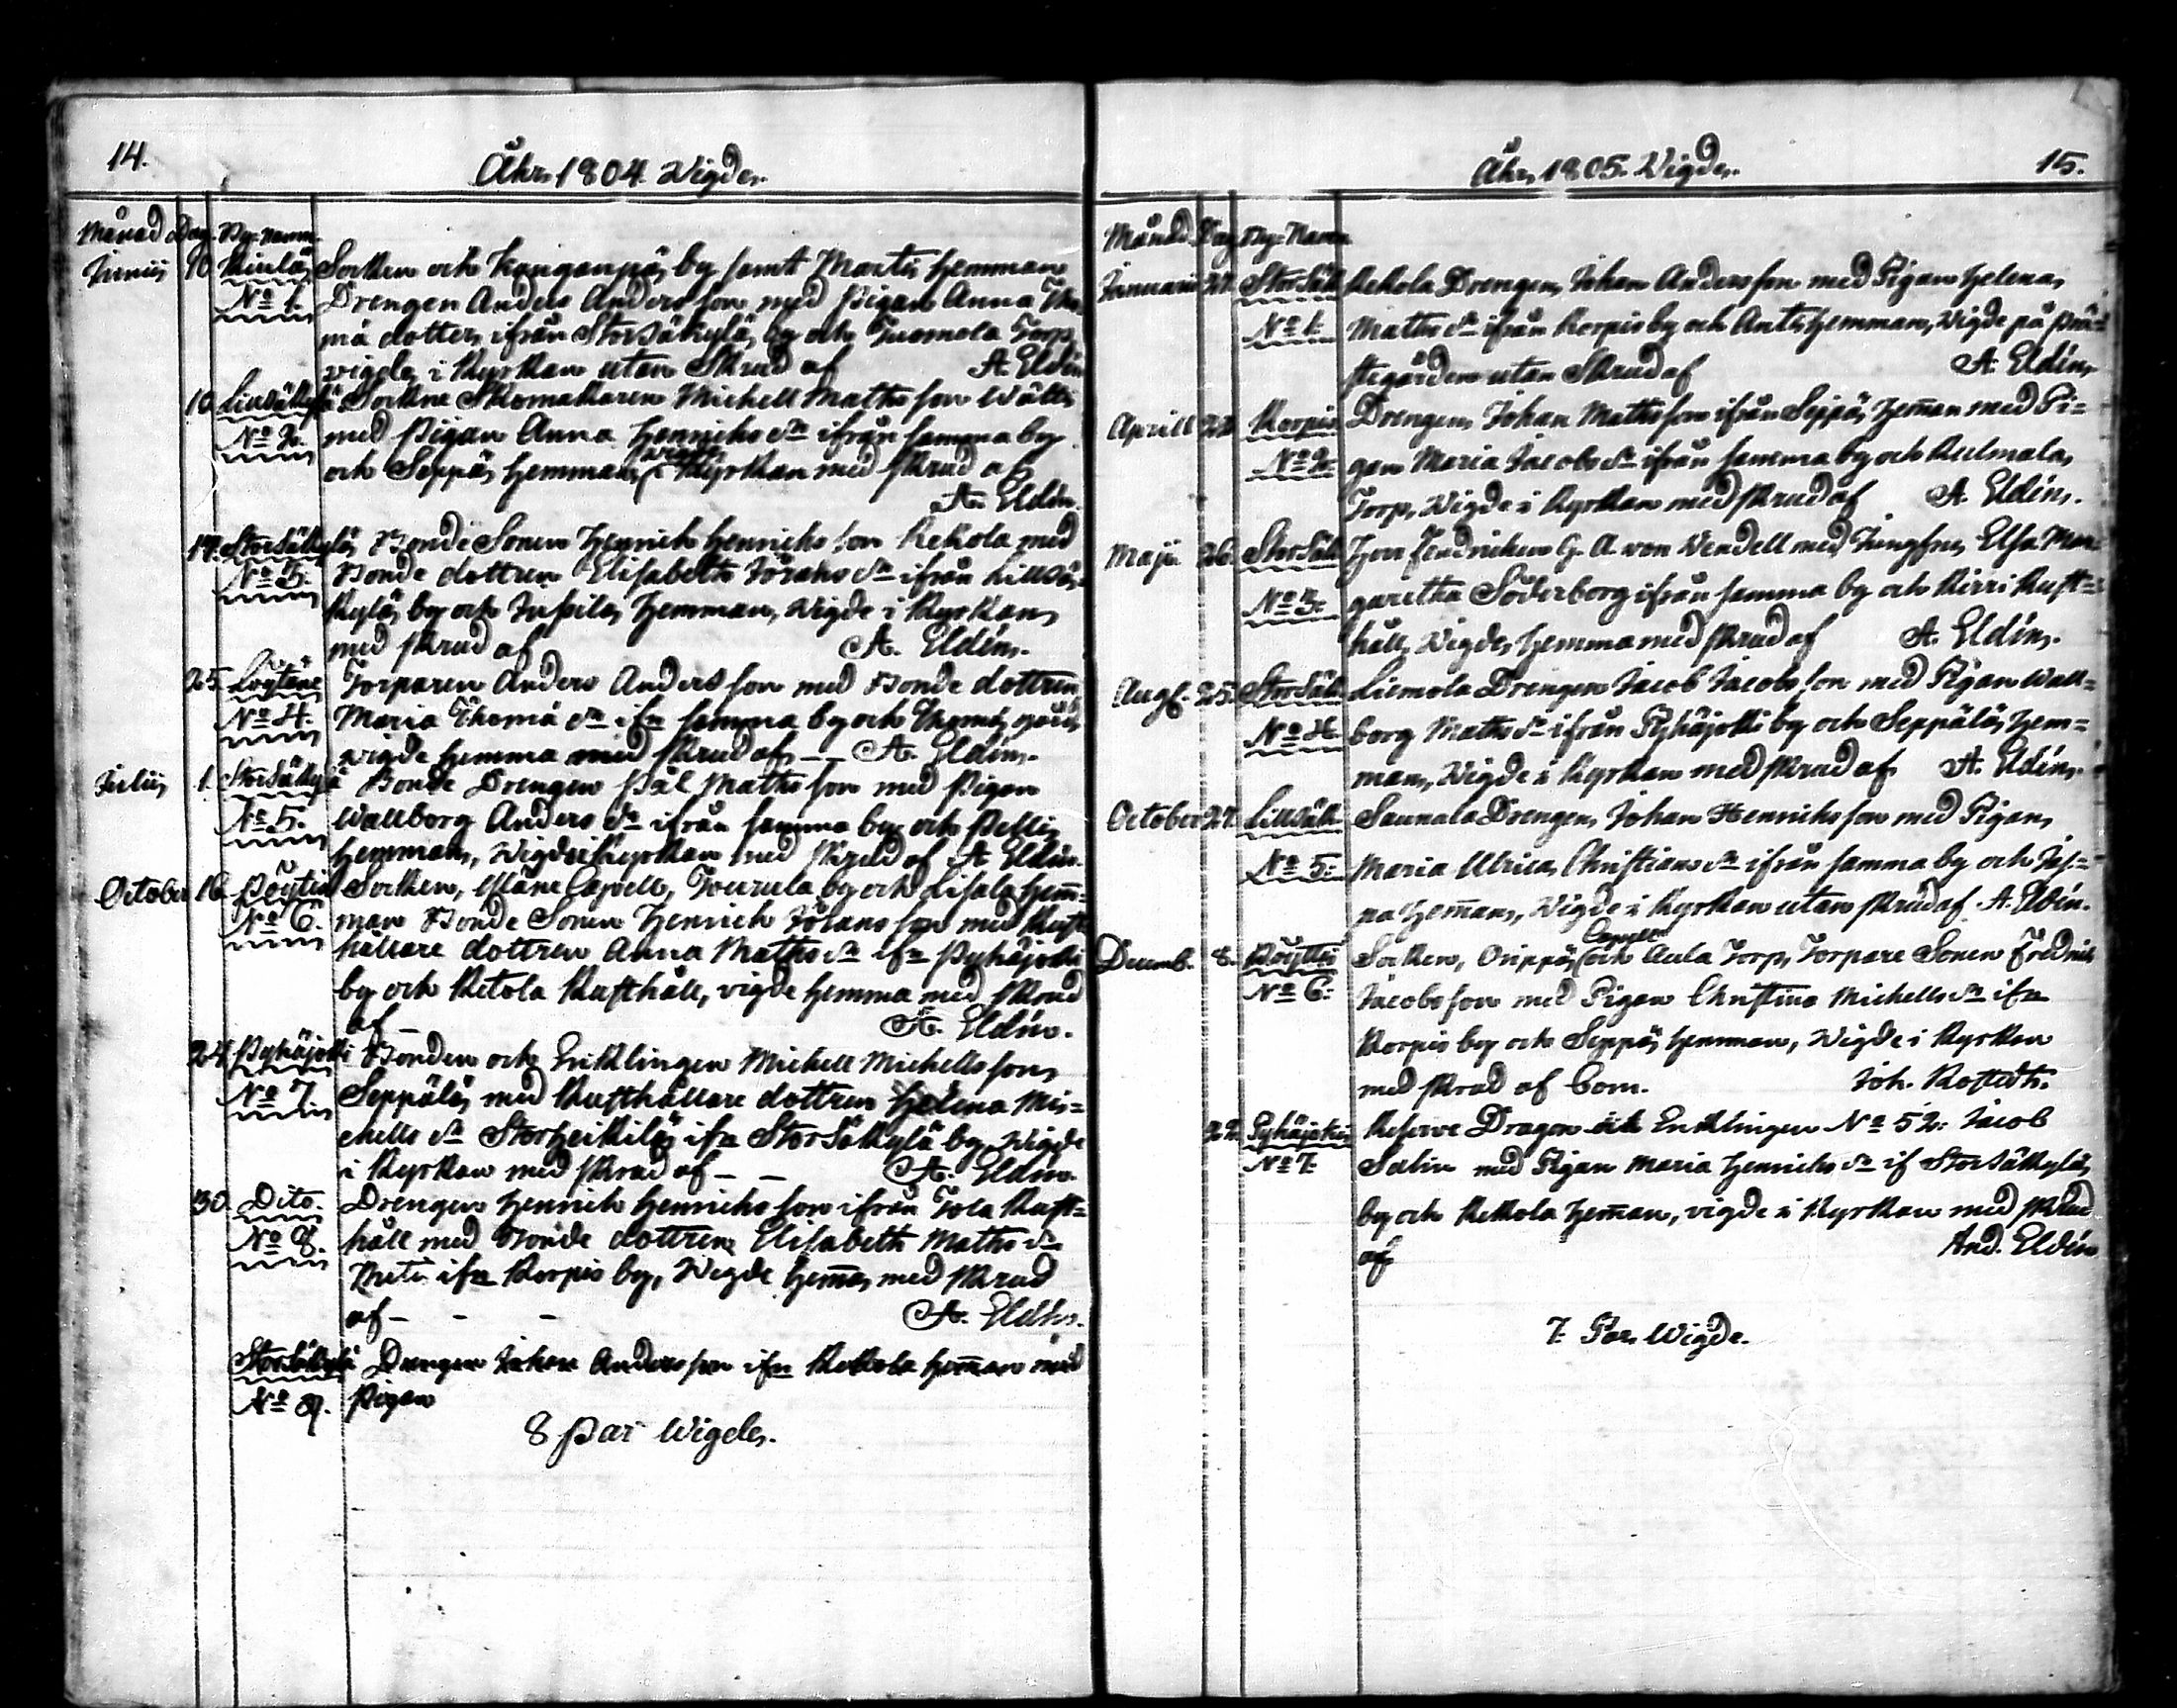 14.
Åhr 1804. Wigde.
Månad Dag. By-Namn.
Junii 10. Kiulås Socken och Kanganpä by samt Martis hemman
No 1. Drengen Anders Andersson med Pigan Anna Tho-
mä dotter ifrån Storsäkylä by och Tuomola Torp,
wigde i Kyrkan utan Skrud af A. Eldin
10. Lillsäkylä Sockne Skomakaren Michell Mathsson Wälli
No 2. med Pigan Anna Henrichs dr ifrån samma by
och Seppäs hemman, wigde i Kyrkan med skrud af
A. Eldin.
17. Storsäkylä Bonde Sonen Henrich Henrichsson Rekola med
No 3. Bonde dottren Elisabeth Jörans dr ifrån Lillsä-
kylä by och Jusila hemman, wigde i Kyrkan,
med skrud af A. Eldin.
25. Löytäne Torparen Anders Andersson med Bonde dottren
No 4. Maria Thomä dr ifn samma by och Thomä
wigde hemma med skrud af — A. Eldin.
Julii 1. Storsäkylä Bonde Drengen Pål Mathsson med Pigan
No 5. Wallborg Anders dr ifrån samma by och Pelli
hemman, Wigde i Kyrkan med skrud af A Eldin.
October 16. Pöytis Socken, Yläne Capell, Tourula by och Lisala hem̄-
No 6. man Bonde Sonen Henrich Jöransson med Rust-
hållare dottren Anna Maths dr ifn Pyhäjoki
by och Ketola Rusthåll, vigde hemma med skrud
af — A. Eldin.
24. Pyhäjoki Bonden och Enklingen Michell Michellsson
No 7. Seppälä med Rusthållare dottren Helena Mi-
chells dr Storheikilä ifn StorSäkylä by, Wigde
i Kyrkan med skrud af — — A. Eldin.
30. Dito. Drengen Henrich Henrichsson ifrån Tola Rust-
No 8. håll med Bonde dottren Elisabeth Maths dr
ifn Korpis by, Wigde hem̄a med skrud
af — - - A. Eldin.
Storsäkylä Drengen Johan Andersson ifn Rekola hem̄an med
No 9. Pigan
8 par Wigde.
Åhr 1805. Wigde.
15.
Månad. Dag By-Namn
Januarii 27. StorSäk. Rekola Drengen, Johan Andersson med Pigan Helena,
No 1. Maths dr ifrån Korpis by och Antis hemman, Wigde på Prä-
stegården utan Skrud af A. Eldin,
Aprill Korpis Drengen, Johan Mathsson ifrån Seppäs hem̄an med Pi-
No 2. gan Maria Jacobs dr ifrån samma by och
Torp, Wigde i Kyrkan med skrud af A. Eldin.
Maji 26. StorSäk. Herr Fendricken G. A von Wendell med Jungfru Elsa Mar-
No 3. garetha Söderborg ifrån samma by och Kirri Rust-
håll, Wigde, hemma med skrud af A. Eldin.
Aug. 25. StorSäk. Liemola Drengen Jacob Jacobsson med Pigan Wall-
No 4. borg Maths dr ifrån Pyhäjoki by och Seppälä, hem-
man, Wigde i Kyrkan med skrud af A. Eldin.
October 27. Lillsäk. Saunala Drengen, Johan Henrichsson med Pigan,
No 5. Maria Ulrica Christians dr ifrån samma by och Jus-
na hem̄an, Wigde i Kyrkan utan skrud af A. Eldin.
Decemb. 8. Pöyttis Socken, Orippä Capell och Aula Torp, Torpare Sonen Fredrich
No 6: Jacobsson med Pigan Christina Michells dr ifn
Korpis by och Seppäs hemman, Wigde i Kyrkan
med skrud af Com. Joh. Rostedt.
22. Pyhäjoki Reserve Dragon och Enklingen No 52: Jacob
No 7. Salin med Pigan Maria Henrichs dr if Storsäkylä
by och Rekola hem̄an, vigde i Kyrkan med skrud
af And. Eldin
7. Par Wigde.